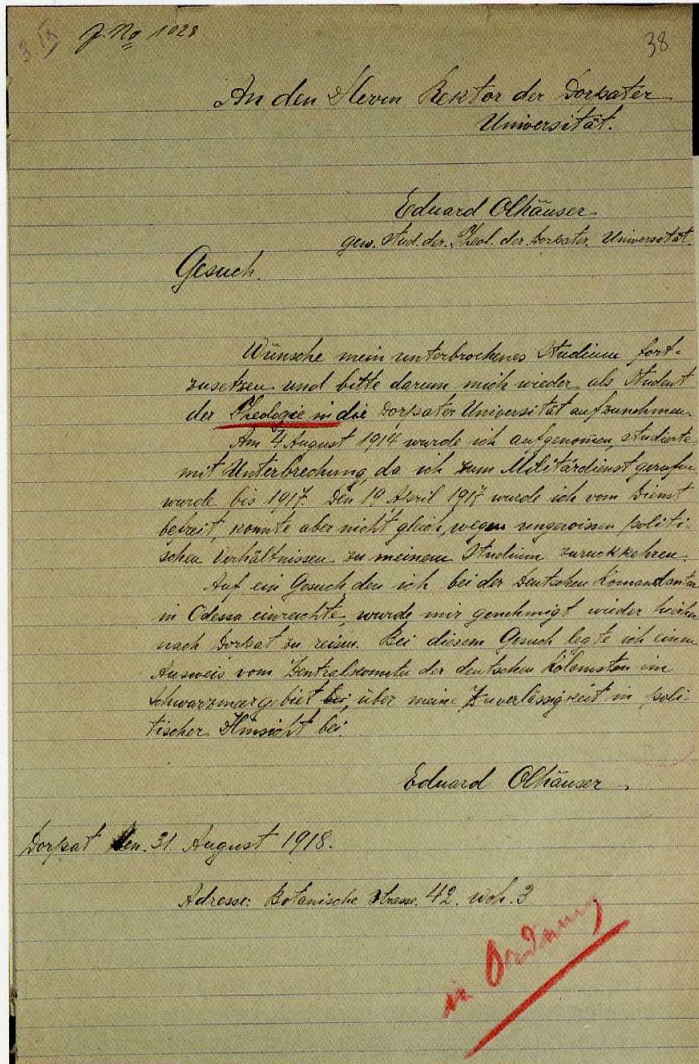 3. IX J. No 1028
38
An den Herrn Rektor der Dorpater
Universität.
Eduard Olhäuser
gew. Stud. der Theol. der Dorpater Universität.
Gesuch.
Wünsche mein unterbrochenes Studium fort-
zusetzen und bitte darum mich wieder als Student
der Theologie in die Dorpater Universität aufzunehmen.
Am 4 August 1914 wurde ich aufgenomen, studierte
mit Unterbrechung, da ich zum Militärdienst gerufen
wurde bis 1917. Den 19 April 1917 wurde ich vom Dienst
befreit, konnte aber nicht gleich, wegen ungewissen politi-
schen Verhältnissen zu meinem Studium zurückkehren.
Auf ein Gesuch, den ich bei der Deutschen Komandantur
in Odessa einreichte, wurde mir genehmigt wieder hierher
nach Dorpat zu reisen. Bei diesem Gesuch legte ich einen
Ausweis vom Zentralkomite der deutschen Kolonisten im
Schwarzmeergebiet bei, über meine Zuverlässigkeit in poli-
tischer Hinsicht bei.
Eduard Olhäuser.
Dorpat den 31. August 1918.
Adresse: Botanische Strasse. 42. woh. 3
in Ordnung